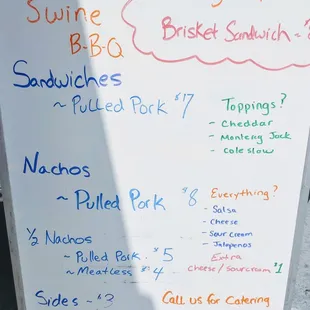 Swine
B-B-Q
Brisket Sandwich
Sandwiches
~ Pulled Pork $17
Toppings?
- Cheddar
- Monteny Jack
- Coleslaw
Nachos
~ Pulled Pork $8
Everything?
- Salsa
- Cheese
- Sour Cream
- Jalapenos
½ Nachos
~ Pulled Pork $5
~ Meatless $4
Extra
cheese/sourcream $1
Sides - $3
Call us for Catering